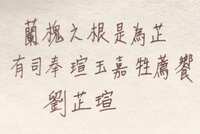 蘭槐之根是為芷
有司奉瑄玉嘉牲薦饗
劉芷瑄